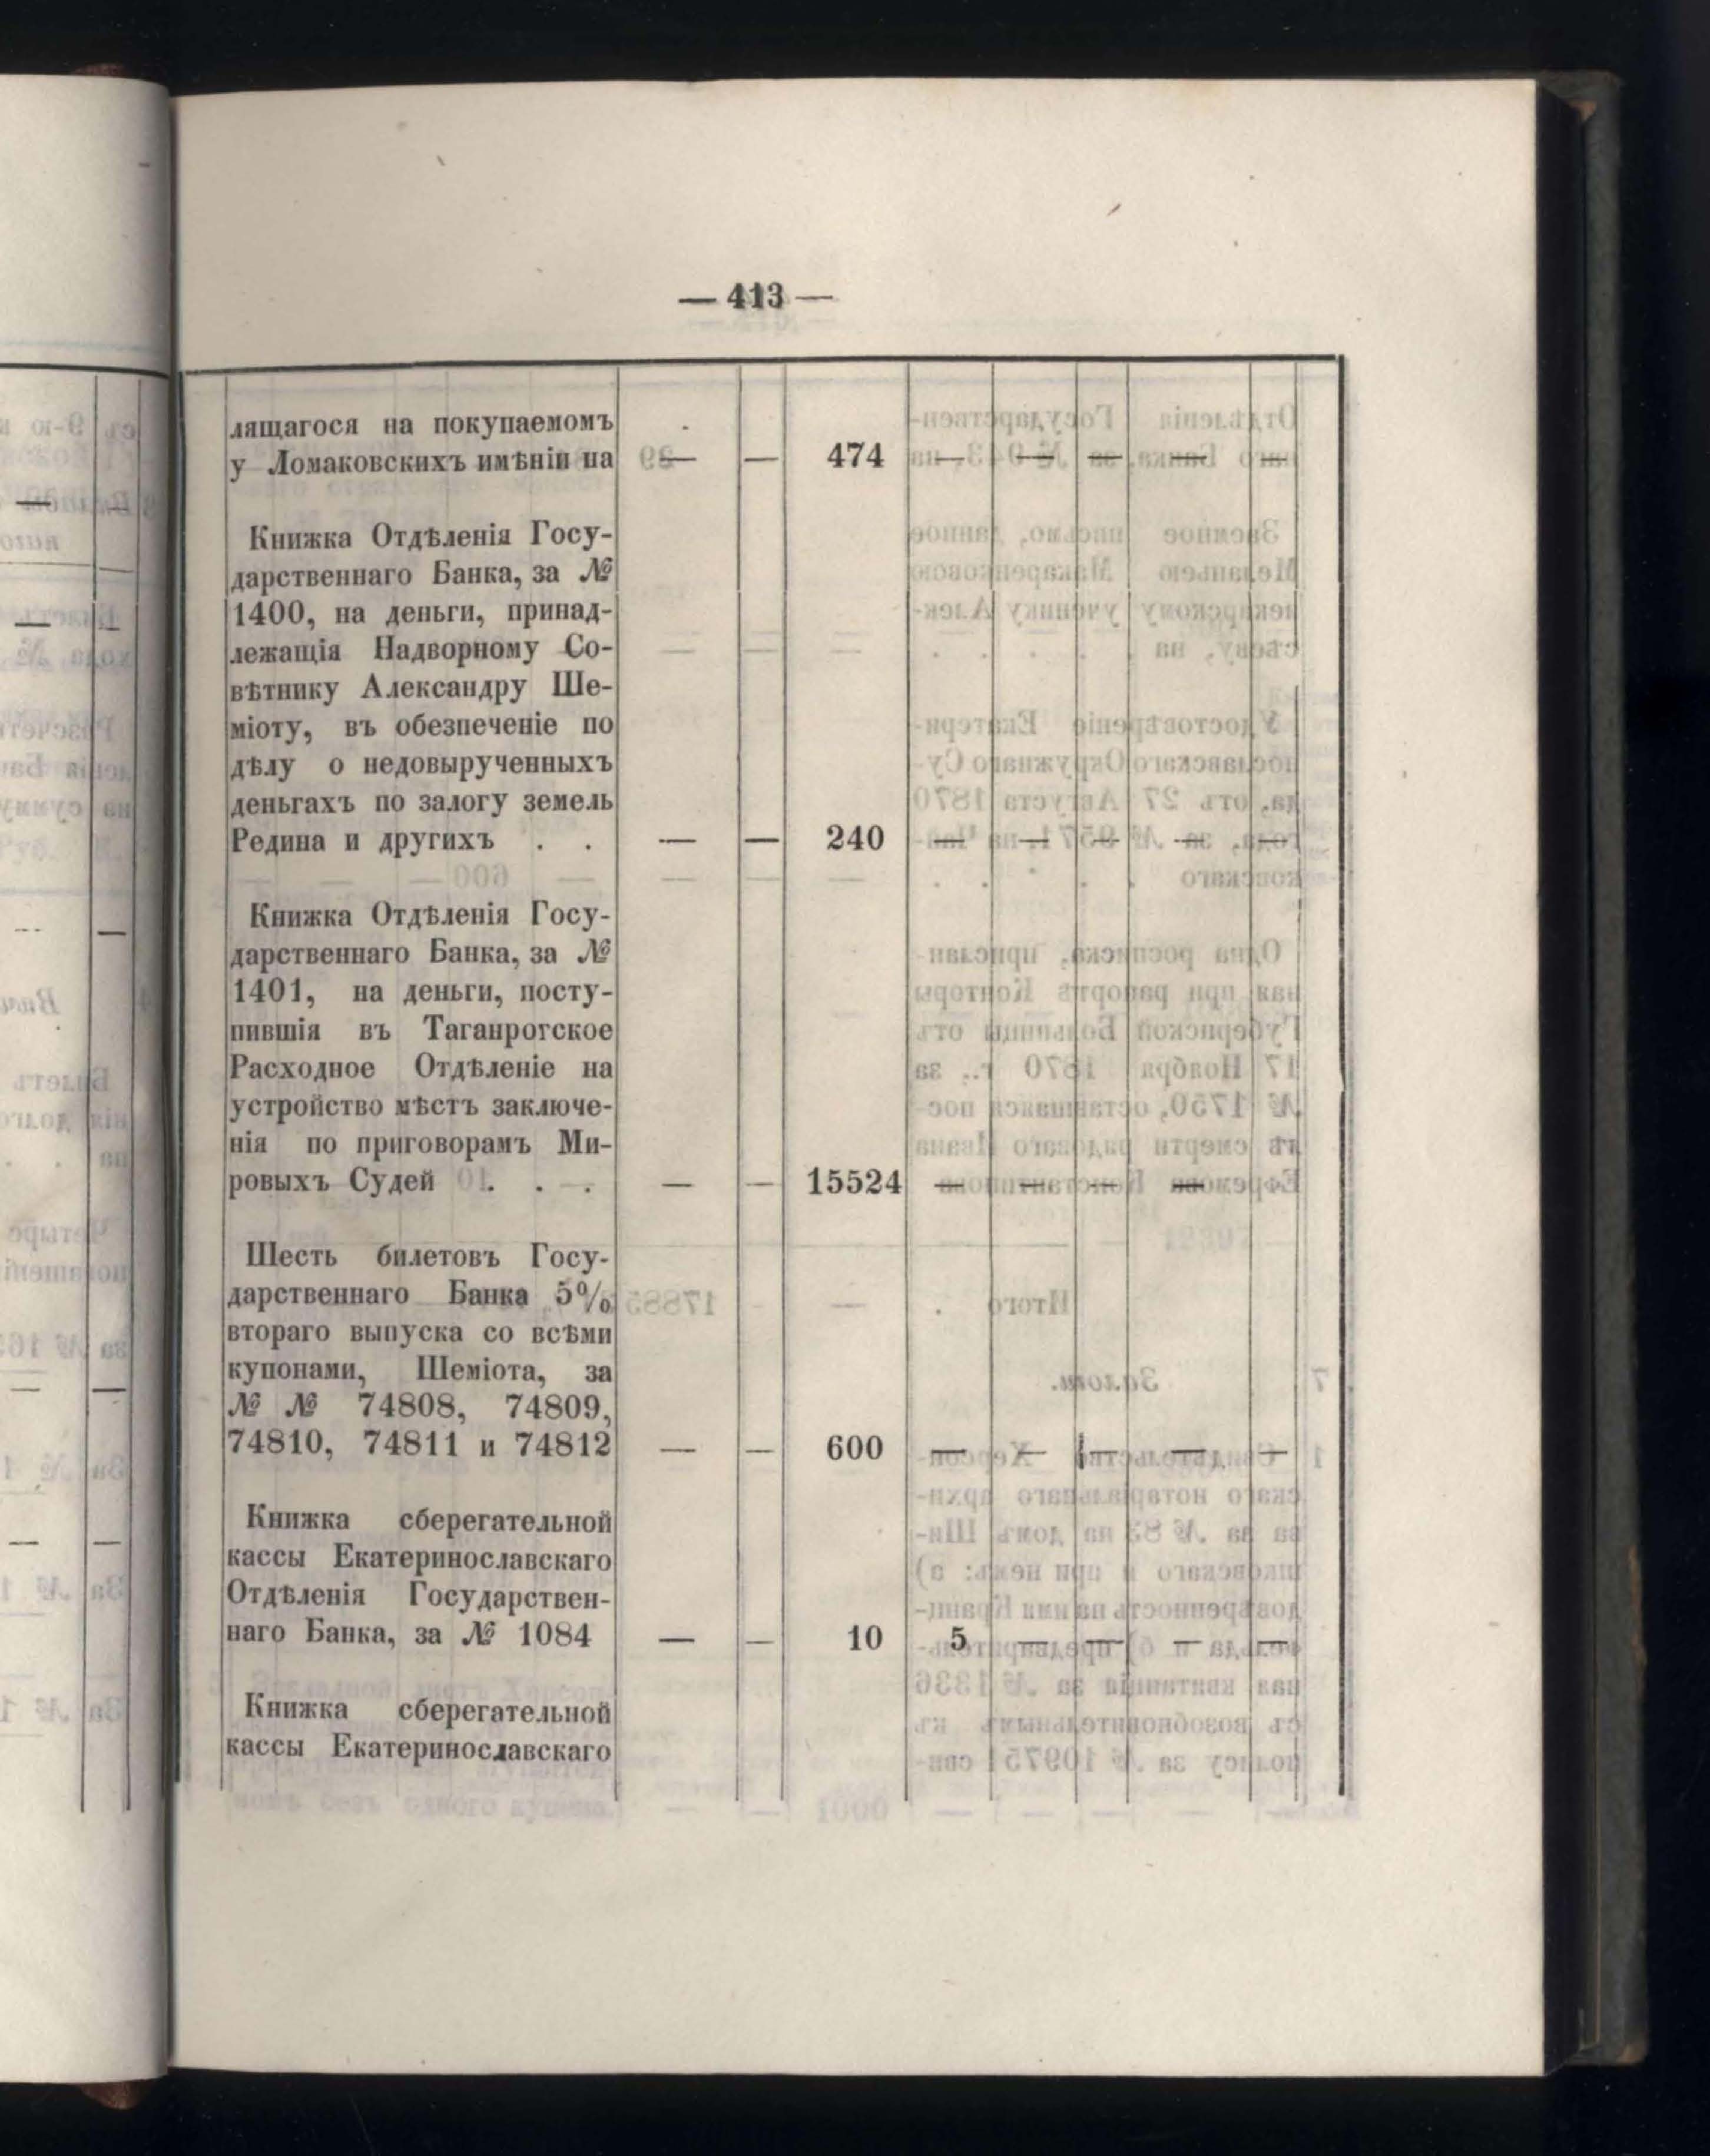 — 413 —
лящагося на покупаемомъ
у Ломаковскихъ имѣніи на — — 474 — — — — —
Книжка Отдѣленія Госу-
дарственнаго Банка, за №
1400, на деньги, принад-
лежащія Надворному Со-
вѣтнику Александру Ше-
міоту, въ обезпеченіе по
дѣлу о недовырученныхъ
деньгахъ по залогу земель
Редина и другихъ . . — — 240 — — — — —
Книжка Отдѣленія Госу-
дарственнаго Банка, за №
1401, на деньги, посту-
пившія въ Таганрогское
Расходное Отдѣленіе на
устройство мѣстъ заключе-
нія по приговорамъ Ми-
ровыхъ Судей . . . — — 15524 — — — — —
Шесть билетовъ Госу-
дарственнаго Банка 5%
втораго выпуска со всѣми
купонами, Шеміота, за
№ № 74808, 74809,
74810, 74811 и 74812 — — 600 — — — — —
Книжка сберегательной
кассы Екатеринославскаго
Отдѣленія Государствен-
наго Банка, за № 1084 — — 10 5 — — — —
Книжка сберегательной
кассы Екатеринославскаго